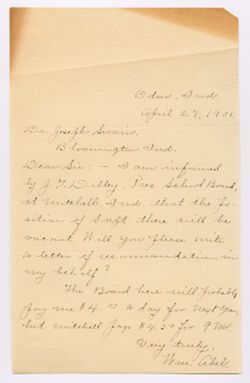 Odon, Ind.
April 27, 1901.
Dr. Joseph Swain,
Bloomington Ind.
Dear Sir: — I am informed
by J. T. Dilley, Pres School Board,
at Mitchell, Ind. that the Po-
sition of Supt there will be
vacant. Will you please write
a letter of recommendation in
my behalf?
The Board here will probably
pay me $4 a day for next year,
but Mitchell pays $4.50 for 9 Mo.
Very truly,
Wm. Abel